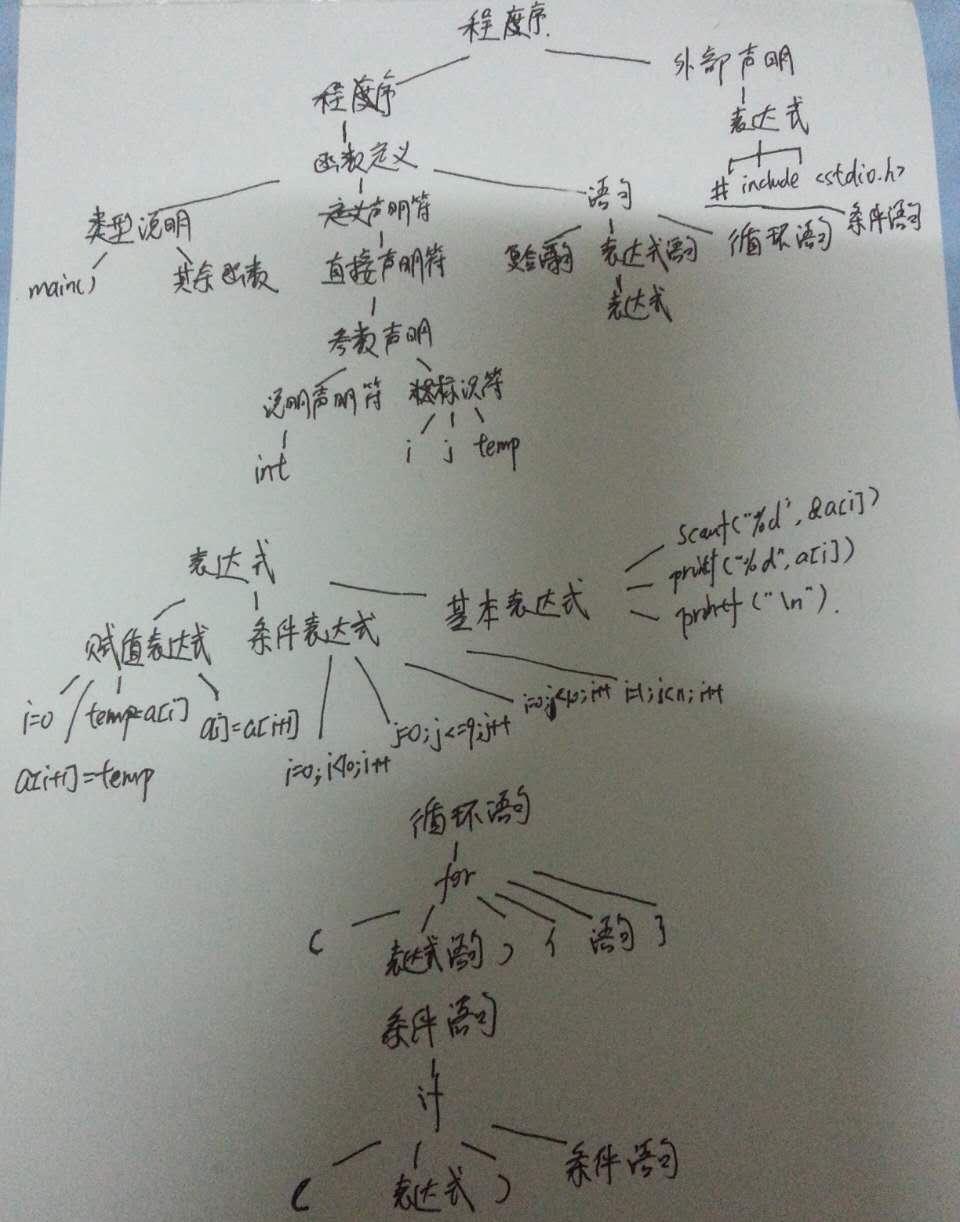 程度序
程度序 外部声明
表达式
函数定义
# include <stdio.h>
类型说明 声明符 语句
main() 其余函数 直接声明符 复合语句 表达式语句 循环语句 条件语句
表达式
参数声明
说明声明符 标识符
int i j temp
表达式 基本表达式 scanf("%d", &a[i])
printf("%d", a[i])
printf("\n").
赋值表达式 条件表达式
i=0 temp=a[i] a[i]=a[i+1]
a[i+1]=temp
i=0; i<10; i++ j=0; j<=9; j++ i=0; j<10; i++ i=1; j<n; i++
循环语句
for
( 表达式语句 ) { 语句 }
条件语句
if
( 表达式 ) 条件语句